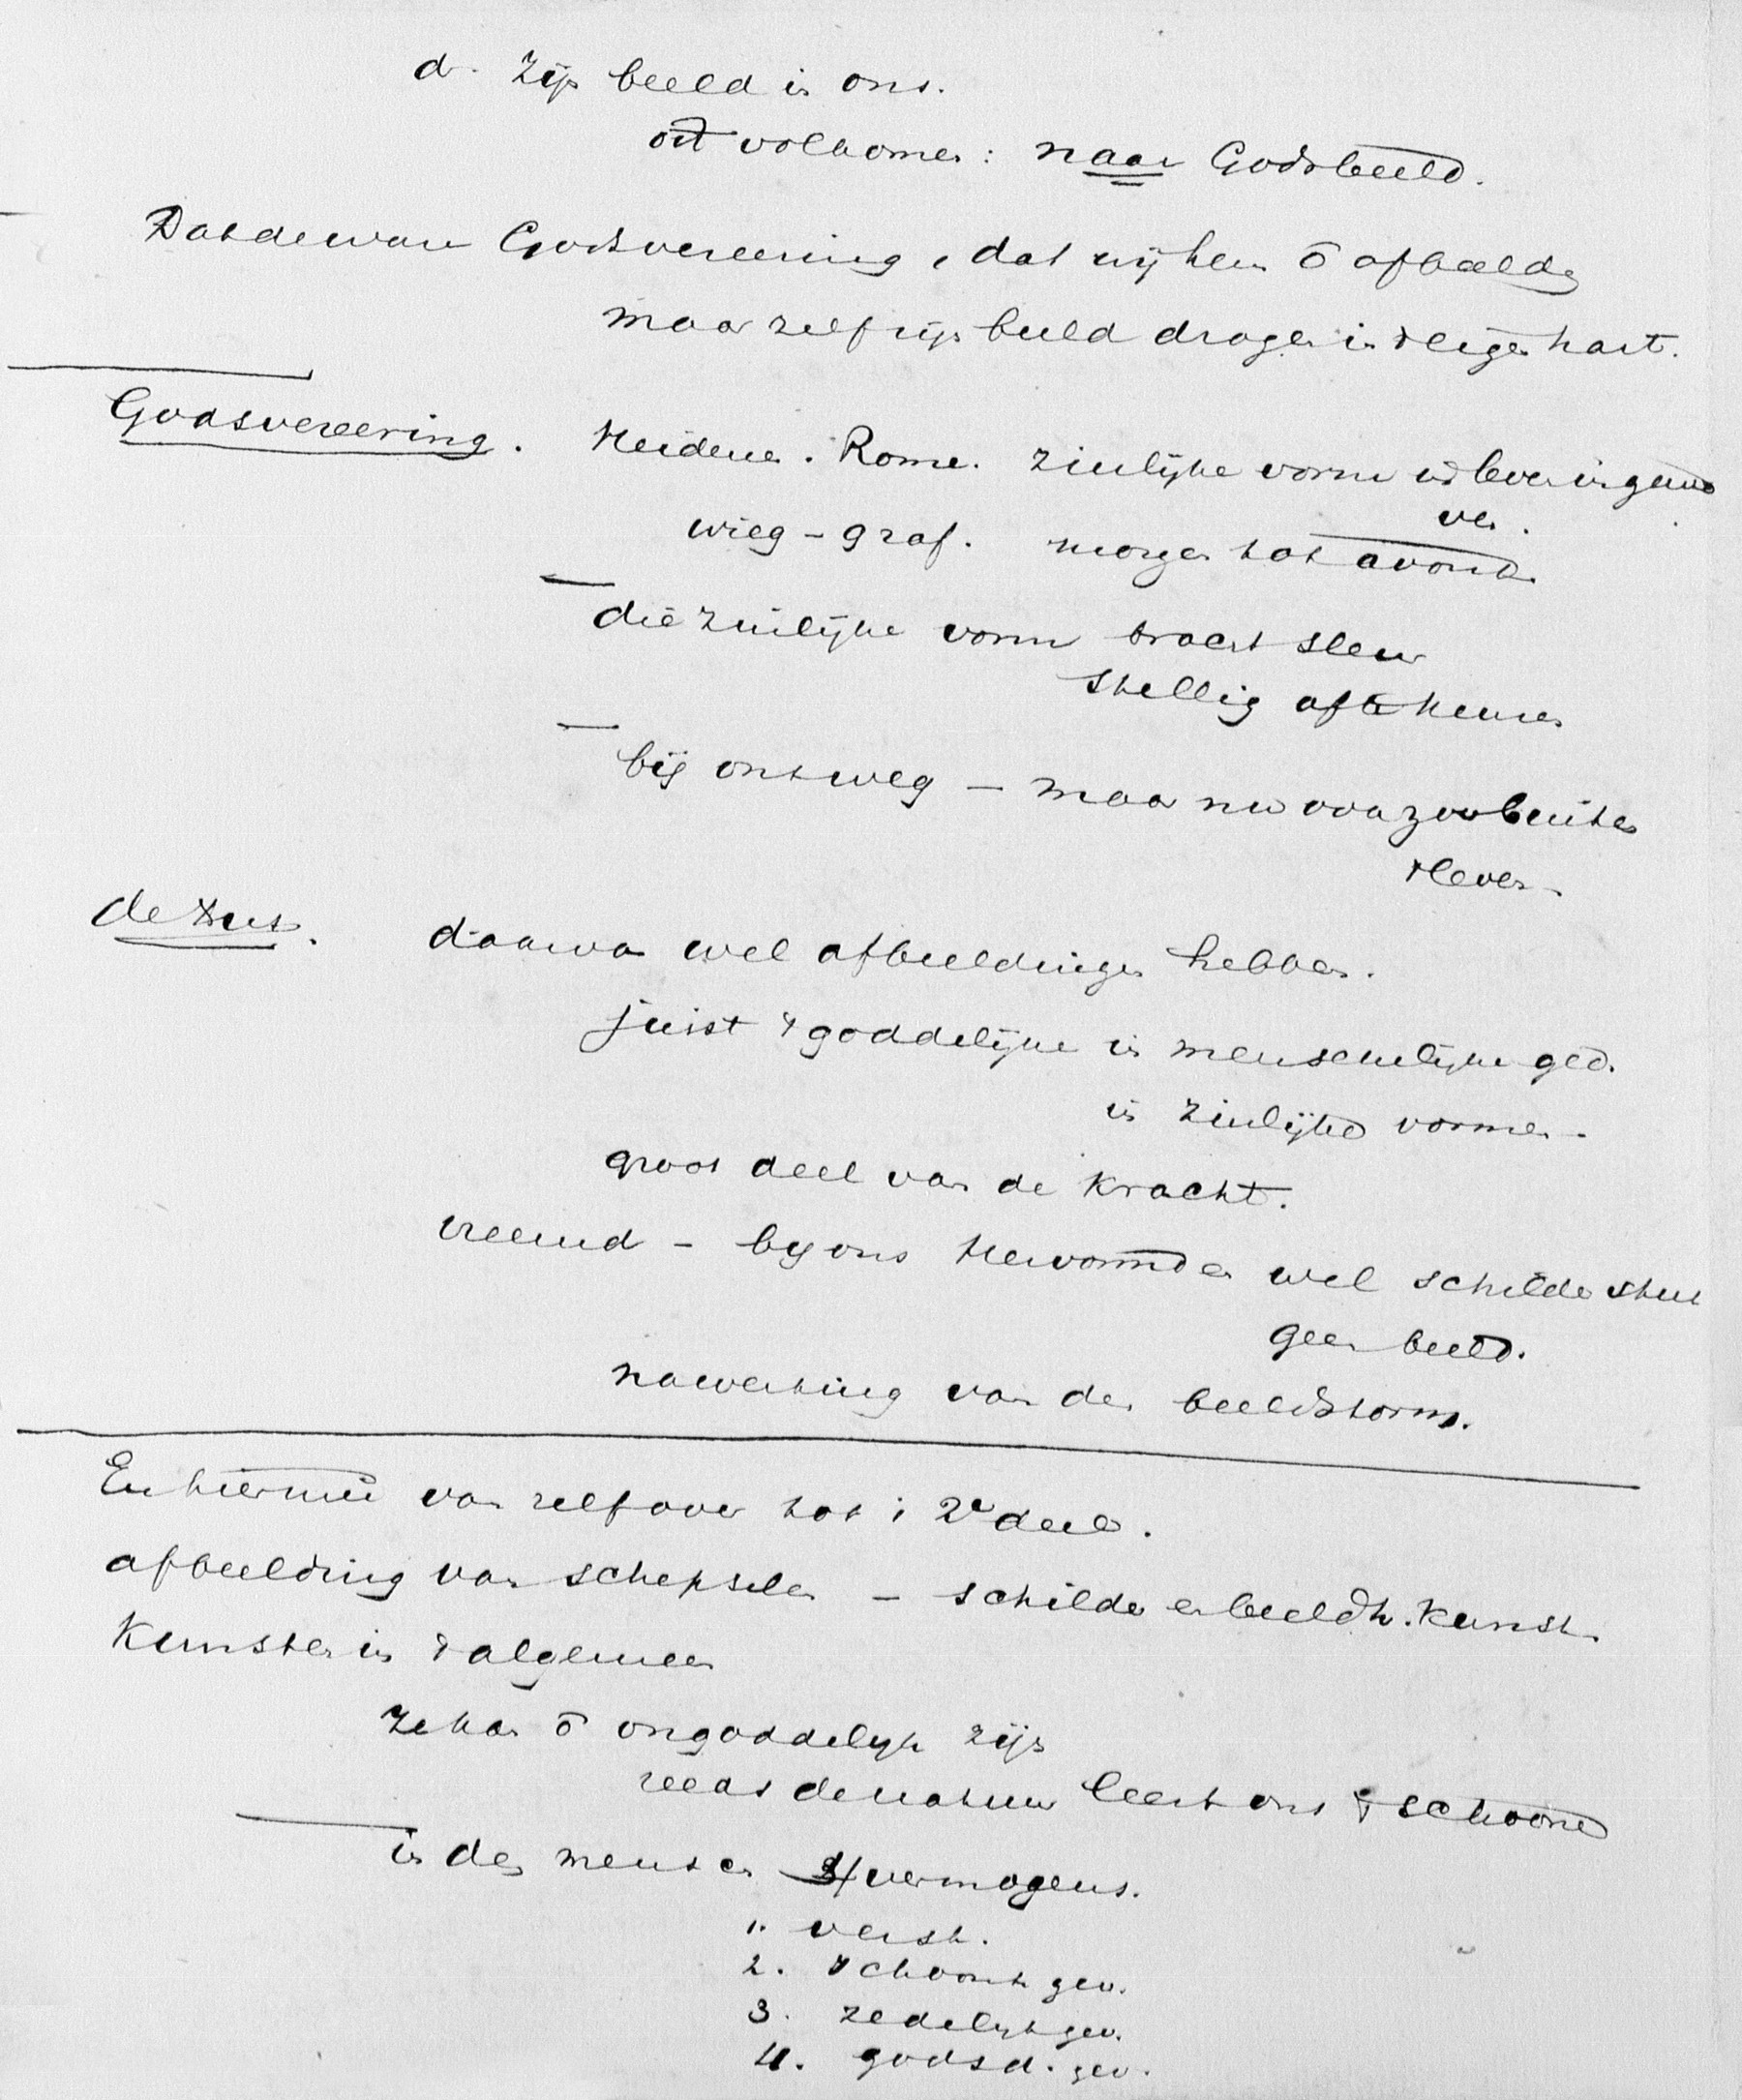 d. Zijn beeld in ons.
ont volkomen: naar Godsbeeld.
Dat de ware Godsvereering, dat wij hem ō afbeelden
maar zelf zijn beeld dragen in 't eigen hart.
Godsvereering. Heidenen. Rome. Zinlijke vorm
ven.
wieg - graf. morgen tot avond.
die zinlijke vorm bracht sleur
stellig af te keuren
bij ons weg - maar nu ook zoo buiten
't leven.
de Kunst. daarvan wel afbeeldingen hebben.
juist 't goddelijke in menschelijke ged.
in zinlijke vormen.
groot deel van de Kracht.
vreemd - bij ons Hervormden wel schilderstuk
geen beeld.
nawerking van den beeldstorm.
En hiermee van zelf over tot 't 2e deel.
afbeelding van schepselen - schilder en beeldh. Kunst.
Kunsten in 't algemeen
ze kan ō ongoddelijk zijn
reeds de natuur leert ons 't schoone
in den mensch 4 vermogens.
1. verst.
2. schoonh. gev.
3. zedelijk gev.
4. godsd. gev.